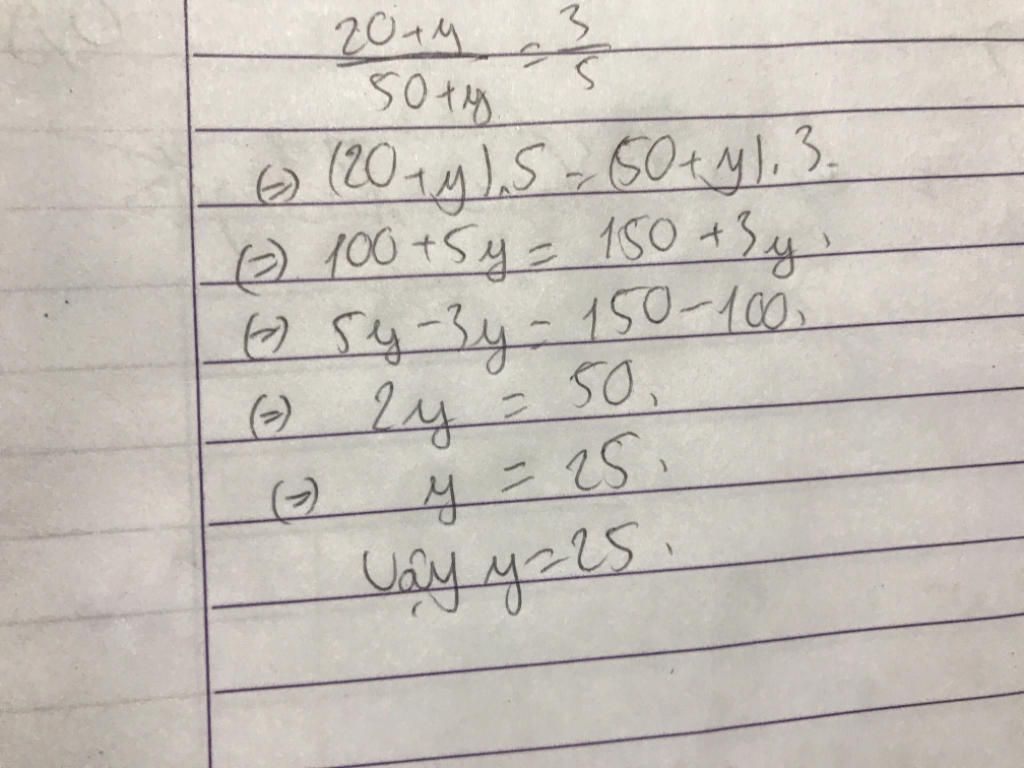 20+y/50+y = 3/5
(⇒) (20+y).5 = (50+y).3.
(⇒) 100+5y = 150+3y.
(⇒) 5y-3y = 150-100.
(⇒) 2y = 50.
(⇒) y = 25.
Vậy y=25.